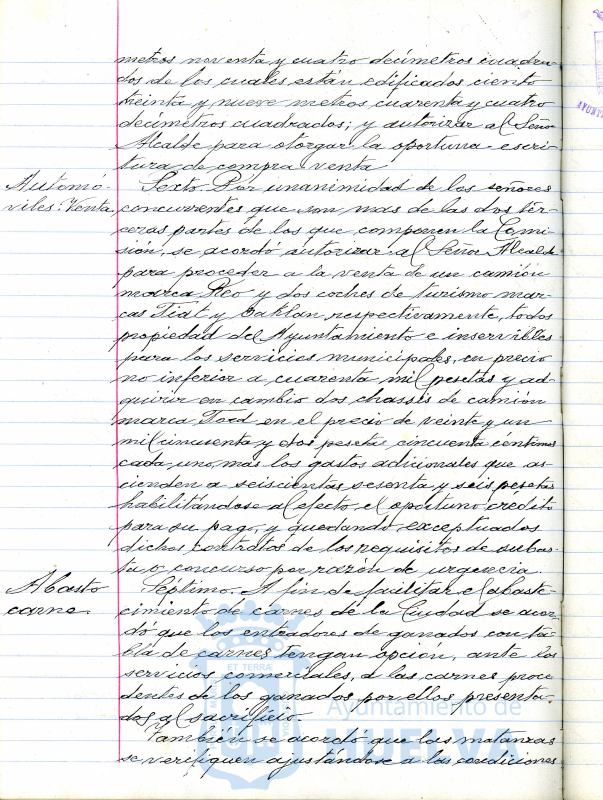 metros noventa y cuatro decímetros cuadra-
dos de los cuales están edificados ciento
treinta y nueve metros cuarenta y cuatro
decímetros cuadrados; y autorizar al Señor
Alcalde para otorgar la oportuna escri-
tura de compra venta
Automó-
viles: Venta.
Sexto. Por unanimidad de los señores
concurrentes que son mas de las dos ter-
ceras partes de los que componen la Comi-
sión, se acordó autorizar al Señor Alcalde
para proceder a la venta de un camión
marca Reo y dos coches de turismo mar-
cas Fiat y Oaklan respectivamente, todos
propiedad del Ayuntamiento e inservibles
para los servicios municipales, en precio
no inferior a cuarenta mil pesetas y ad-
quirir en cambio dos chassis de camión
marca Ford en el precio de veinte y un
mil cincuenta y dos pesetas cincuenta céntimos
cada uno, mas los gastos adicionales que as-
cienden a seiscientas sesenta y seis pesetas
habilitándose al efecto el oportuno crédito
para su pago, y quedando exceptuados
dichos contratos de los requisitos de subas-
ta o concurso por razón de urgencia.
Abasto
carne.
Séptimo. A fin de facilitar el abaste-
cimiento de carnes de la Ciudad se acor-
dó que los entradores de ganados con ta-
bla de carnes tengan opción, ante los
servicios comerciales, a las carnes proce-
dentes de los ganados por ellos presenta-
dos al sacrificio.
También se acordó que las matanzas
se verifiquen ajustándose a las condiciones
ET TERRÆ
Ayuntamiento de
HUELVA